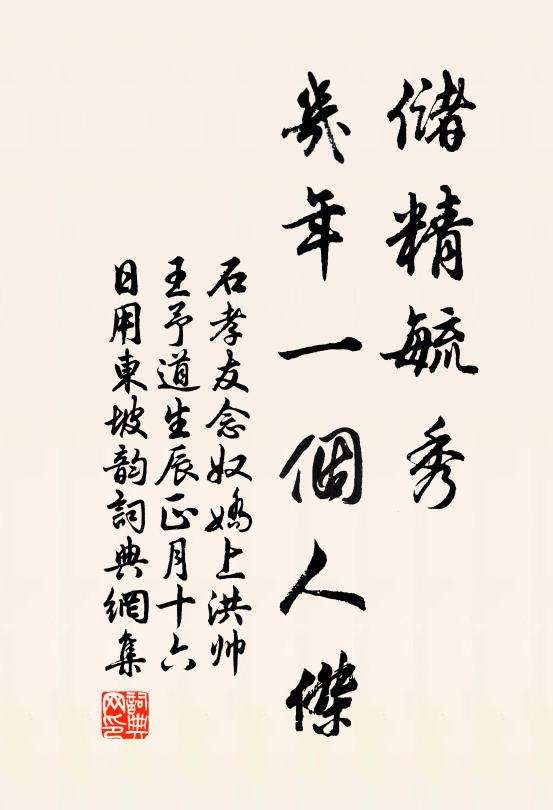 儲精毓秀
幾年一個人傑
石孝友念奴嬌上洪帅
王予道生辰正月十六
日用東坡韵詞典網集
詞典网印